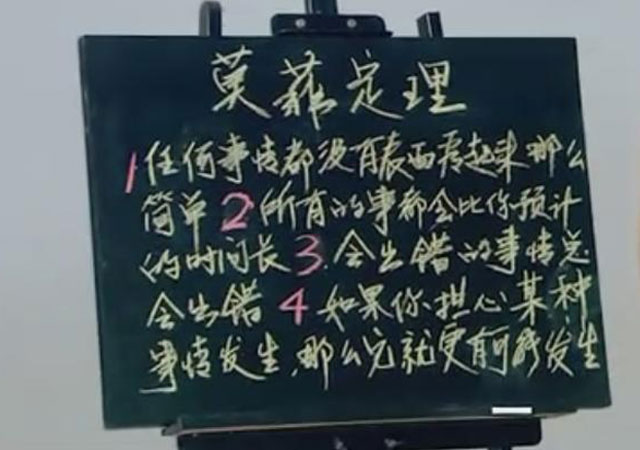 莫菲定理
1任何事情都没有表面看起来那么
简单2所有的事都会比你预计
的时间长3.会出错的事情总
会出错4如果你担心某种
事情发生,那么它就更有可能发生